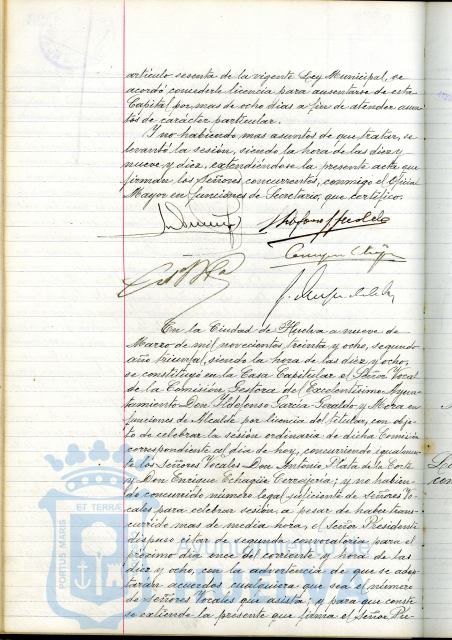 artículo sesenta de la vigente Ley Municipal, se
acordó concederle licencia para ausentarse de esta
Capital por mas de ocho días a fin de atender asun-
tos de carácter particular.
Y no habiendo mas asuntos de que tratar, se
levantó la sesión, siendo la hora de las diez y
nueve y diez, extendiéndose la presente acta que
firman los Señores concurrentes, conmigo el Oficial
Mayor en funciones de Secretario, que certifico.
En la Ciudad de Huelva a nueve de
Marzo de mil novecientos treinta y ocho, segundo
año triunfal, siendo la hora de las diez y ocho,
se constituyó en la Casa Capitular el Señor Vocal
de la Comisión Gestora del Excelentísimo Ayun-
tamiento Don Ildefonso García Geraldo y Mora en
funciones de Alcalde por licencia del titular, con obje-
to de celebrar la sesión ordinaria de dicha Comisión
correspondiente al día de hoy, concurriendo igualmen-
te los Señores Vocales Don Antonio Plata de la Corte
y Don Enrique Echagüe Cerrajería; y no habien-
do concurrido número legal suficiente de Señores Vo-
cales para celebrar sesión, a pesar de haber trans-
currido mas de media hora, el Señor Presidente
dispuso citar de segunda convocatoria para el
próximo día once del corriente y hora de las
diez y ocho, con la advertencia de que se adop-
tarán acuerdos cualquiera que sea el número
de Señores Vocales que asista; y para que conste
se extiende la presente que firma el Señor Pre-
PORTUS MARIS ET TERRAE